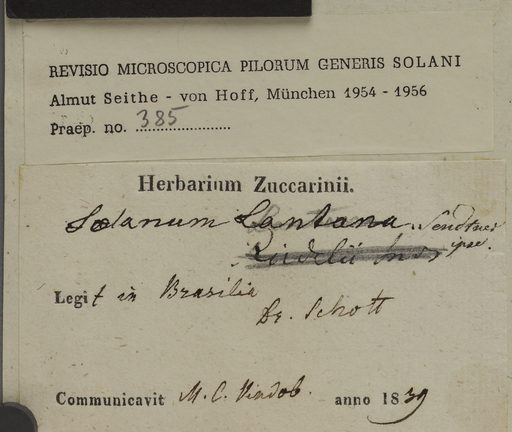 REVISIO MICROSCOPICA PILORUM GENERIS SOLANI
Almut Seithe - von Hoff, München 1954 - 1956
Praep. no. 385
Herbarium Zuccarinii.
Solanum Lantana Sendtner
ipse.
Legit in Brasilia
Dr. Schott
Communicavit M. C. Vindob. anno 1839